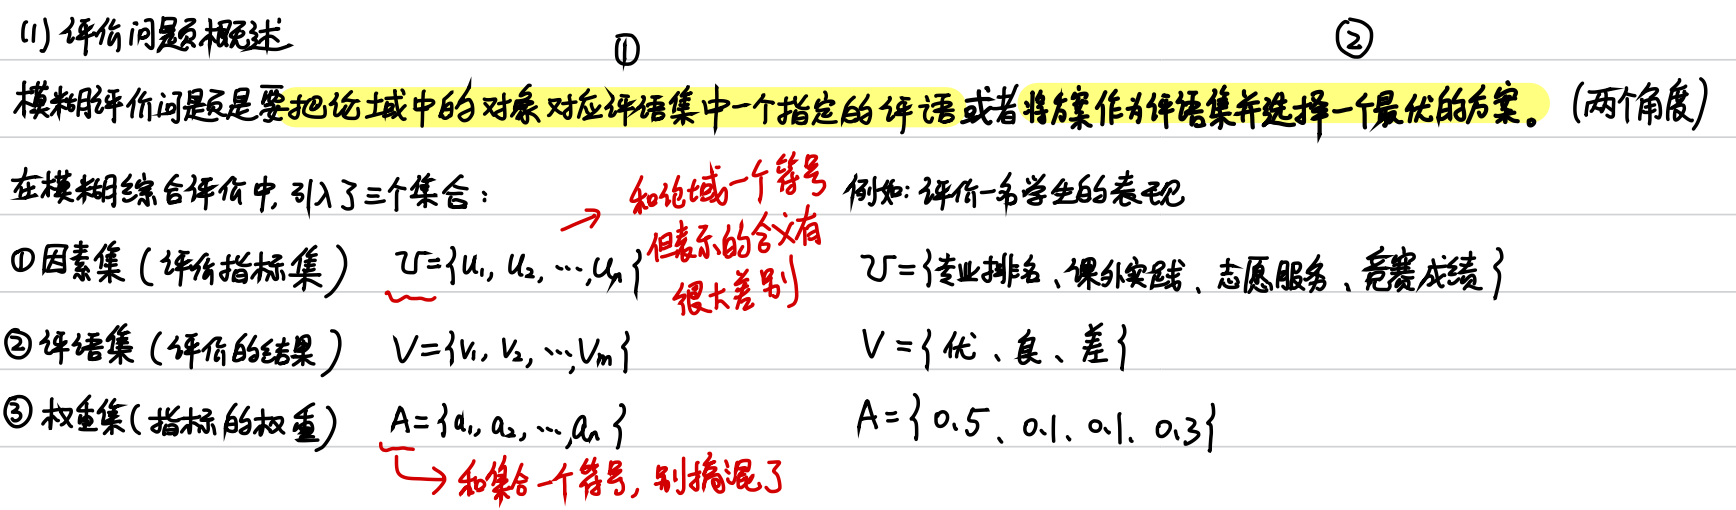 (1) 评价问题概述
① ②
模糊评价问题是要把论域中的对象对应评语集中一个指定的评语或者将方案作为评语集并选择一个最优的方案。(两个角度)
在模糊综合评价中,引入了三个集合:
和论域一个符号
但表示的含义有
很大差别
例如:评价一名学生的表现
①因素集(评价指标集) U={u₁, u₂, ···, uₙ} U={专业排名、课外实践、志愿服务、竞赛成绩}
②评语集(评价的结果) V={v₁, v₂, ···, vₘ} V={优、良、差}
③权重集(指标的权重) A={a₁, a₂, ···, aₙ} A={0.5、0.1、0.1、0.3}
和集合一个符号,别搞混了